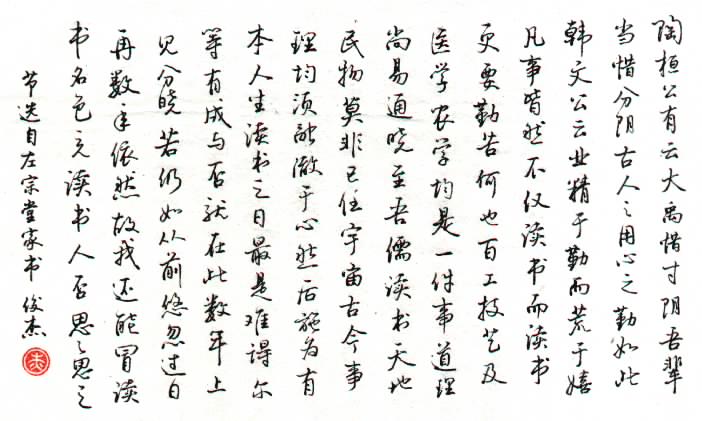 陶桓公有云大禹惜寸阴吾辈
当惜分阴古人之用心之勤如此
韩文公云业精于勤而荒于嬉
凡事皆然不仅读书而读书
更要勤苦何也百工技艺及
医学农学均是一件事道理
尚易通晓至吾儒读书天地
民物莫非己任宇宙古今事
理均须融澈于心然后施为有
本人生读书之日最是难得尔
等有成与否就在此数年上
见分晓若仍如从前悠忽过日
再数年依然故我还能冒读
书名色充读书人否思之思之
节选自左宗堂家书 俊杰